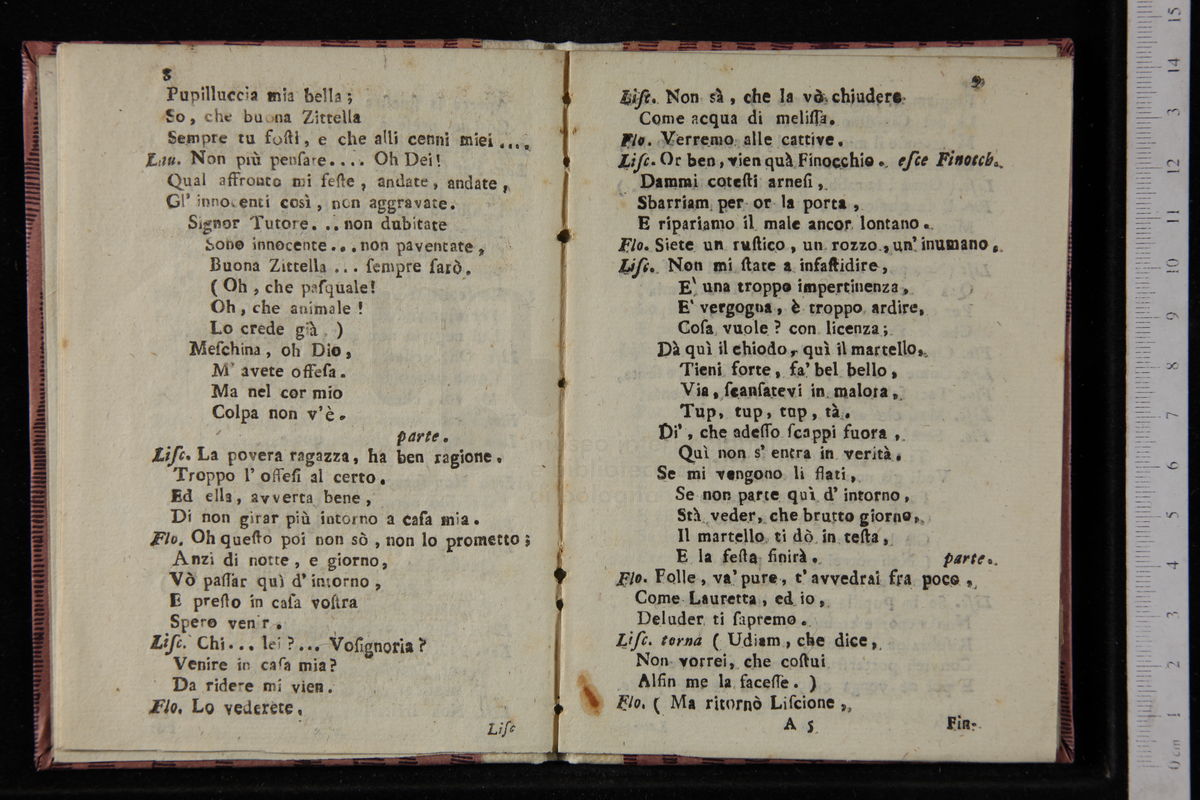 8
Pupilluccia mia bella;
So, che buona Zittella
Sempre tu foſti, e che alli cenni miei ....
Lau. Non più penſare.... Oh Dei!
Qual affronto mi feſte, andate, andate,
Gl' innocenti così, non aggravate.
Signor Tutore... non dubitate
Sono innocente... non paventate,
Buona Zittella ... ſempre ſarò.
(Oh, che paſquale!
Oh, che animale!
Lo crede già.)
Meſchina, oh Dio,
M' avete offeſa.
Ma nel cor mio
Colpa non v'è.
parte.
Liſc. La povera ragazza, ha ben ragione.
Troppo l' offeſi al certo.
Ed ella, avverta bene,
Di non girar più intorno a caſa mia.
Flo. Oh queſto poi non sò, non lo prometto;
Anzi di notte, e giorno,
Vò paſſar quì d' intorno,
E preſto in caſa voſtra
Spero venir.
Liſc. Chi... lei?... Voſignoria?
Venire in caſa mia?
Da ridere mi vien.
Flo. Lo vederete.
Liſc
9
Liſc. Non sà, che la vò chiudere
Come acqua di meliſſa.
Flo. Verremo alle cattive.
Liſc. Or ben, vien quà Finocchio. eſce Finocch.
Dammi coteſti arneſi,
Sbarriam per or la porta,
E ripariamo il male ancor lontano.
Flo. Siete un ruſtico, un rozzo, un' inumano.
Liſc. Non mi ſtate a infaſtidire,
E' una troppo impertinenza,
E' vergogna, è troppo ardire,
Coſa vuole? con licenza;
Dà quì il chiodo, quì il martello,
Tieni forte, fa' bel bello,
Via, ſcanſatevi in malora,
Tup, tup, tup, tà.
Di', che adeſſo ſcappi fuora,
Quì non s' entra in verità.
Se mi vengono li flati,
Se non parte quì d' intorno,
Stà veder, che brutto giorno,
Il martello ti dò in teſta,
E la feſta finirà. parte.
Flo. Folle, va' pure, t' avvedrai fra poco,
Come Lauretta, ed io,
Deluder ti ſapremo.
Liſc. torna (Udiam, che dice,
Non vorrei, che coſtui
Alfin me la faceſſe.)
Flo. (Ma ritornò Liſcione,
A 5 Fin-
0 cm 1 2 3 4 5 6 7 8 9 10 11 12 13 14 15